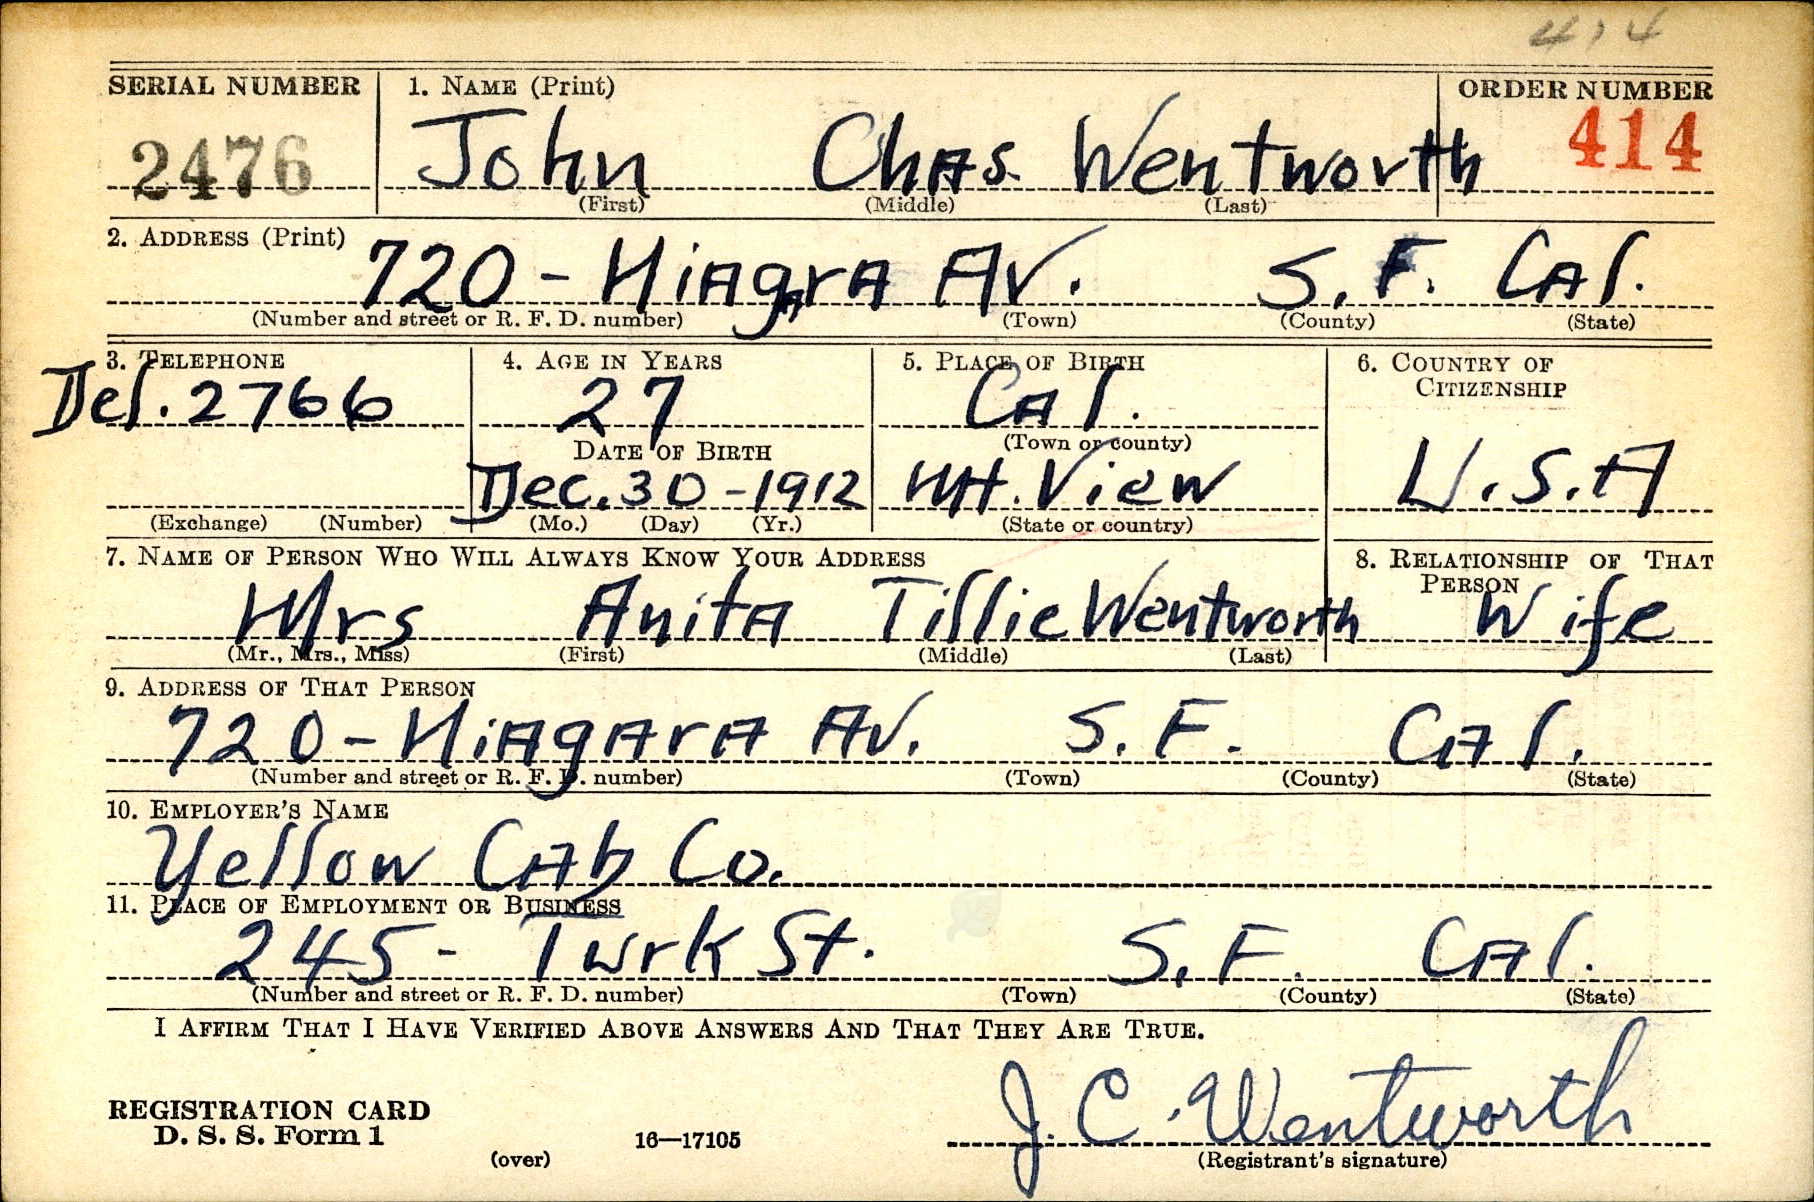 414
SERIAL NUMBER 1. NAME (Print) ORDER NUMBER
2476 John Chas. Wentworth 414
(First) (Middle) (Last)
2. ADDRESS (Print)
720 - Niagra Av. S. F. Cal.
(Number and street or R. F. D. number) (Town) (County) (State)
3. TELEPHONE 4. AGE IN YEARS 5. PLACE OF BIRTH 6. COUNTRY OF
CITIZENSHIP
Del. 2766 27 Cal.
(Town or county)
DATE OF BIRTH
Dec. 30 - 1912 Mt. View U.S.A
(Exchange) (Number) (Mo.) (Day) (Yr.) (State or country)
7. NAME OF PERSON WHO WILL ALWAYS KNOW YOUR ADDRESS 8. RELATIONSHIP OF THAT
PERSON
Mrs Anita Tillie Wentworth Wife
(Mr., Mrs., Miss) (First) (Middle) (Last)
9. ADDRESS OF THAT PERSON
720 - Niagara Av. S. F. Cal.
(Number and street or R. F. D. number) (Town) (County) (State)
10. EMPLOYER'S NAME
Yellow Cab Co.
11. PLACE OF EMPLOYMENT OR BUSINESS
245 - Turk St. S. F. Cal.
(Number and street or R. F. D. number) (Town) (County) (State)
I AFFIRM THAT I HAVE VERIFIED ABOVE ANSWERS AND THAT THEY ARE TRUE.
REGISTRATION CARD
D. S. S. Form 1 16—17105 J. C. Wentworth
(over) (Registrant's signature)